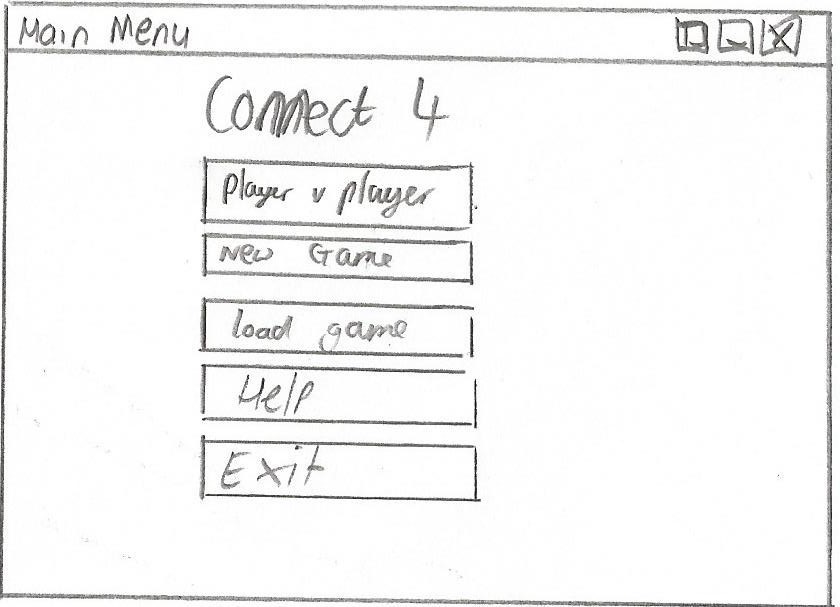 Main Menu
Connect 4
Player v player
New Game
load game
Help
Exit